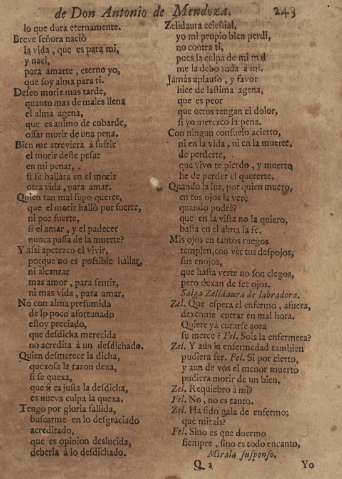 de Don Antonio de Mendoza. 243
lo que dura eternamente.
Breve señora naciò
la vida, que es para mi,
y naci,
para amarte, eterno yo,
que soy alma para ti.
Deseo morir mas tarde,
quanto mas de males llena
el alma agena,
que es animo de cobarde,
ossar morir de una pena.
Bien me atreviera à sufrir
el morir deste pesar
en mi penar,
si se hallàra en el morir
otra vida, para amar.
Quien tan mal supo querer,
que el morir hallò por fuerte,
ni por suerte,
si el amar, y el padecer
nunca passa de la muerte?
Y assi apetezco el vivir,
porque no es possible hallar,
ni alcanzar
mas amor, para sentir,
ni mas vida, para amar.
No con alma presumida
de lo poco afortunado
estoy preciado,
que desdicha merecida
no acredita à un desdichado.
Quien desmerece la dicha,
quexosa la razon dexa,
si se quexa,
que si es justa la desdicha,
es nueva culpa la quexa.
Tengo por gloria fallida,
buscarme en lo desgraciado
acreditado,
que es opinion deslucida,
deberla à lo desdichado.
Zelidaura celestial,
yo mi propio bien perdì,
no contra ti,
pues la culpa de mi mal
me la debo toda à mi.
Jamàs aplauso, y favor
hice de lastima agena,
que es peor
que otros tengan el dolor,
si yo merezco la pena.
Con ningun consuelo acierto,
ni en la vida, ni en la muerte,
de perderte,
que vivo te pierdo, y muerto
he de perder el quererte.
Quando la luz, por quien muero,
en tus ojos la verè
quando podrè?
que en la vista no la quiero,
basta en el alma la fè.
Mis ojos en tantos enojos
templen, con ver tus despojos,
sus enojos,
que hasta verte no son ciegos,
pero dexan de ser ojos.
Salga Zelidaura de labradora.
Zel. Que espera el enfermo, afuera,
dexenme entrar en mal hora.
Quiere ya curarse aora
su merce? Fel. Sois la enfermera?
Zel. Y aun la enfermedad tambien
pudiera ser. Fel. Si por cierto,
y aun de vos el menor muerto
pudiera morir de un bien.
Zel. Requiebro à mi?
Fel. No, no es tanto.
Zel. Ha sido gala de enfermo;
que mirais?
Fel. Sino es que duermo
siempre, sino es todo encanto,
Mirala suspenso.
Q 2 Yo